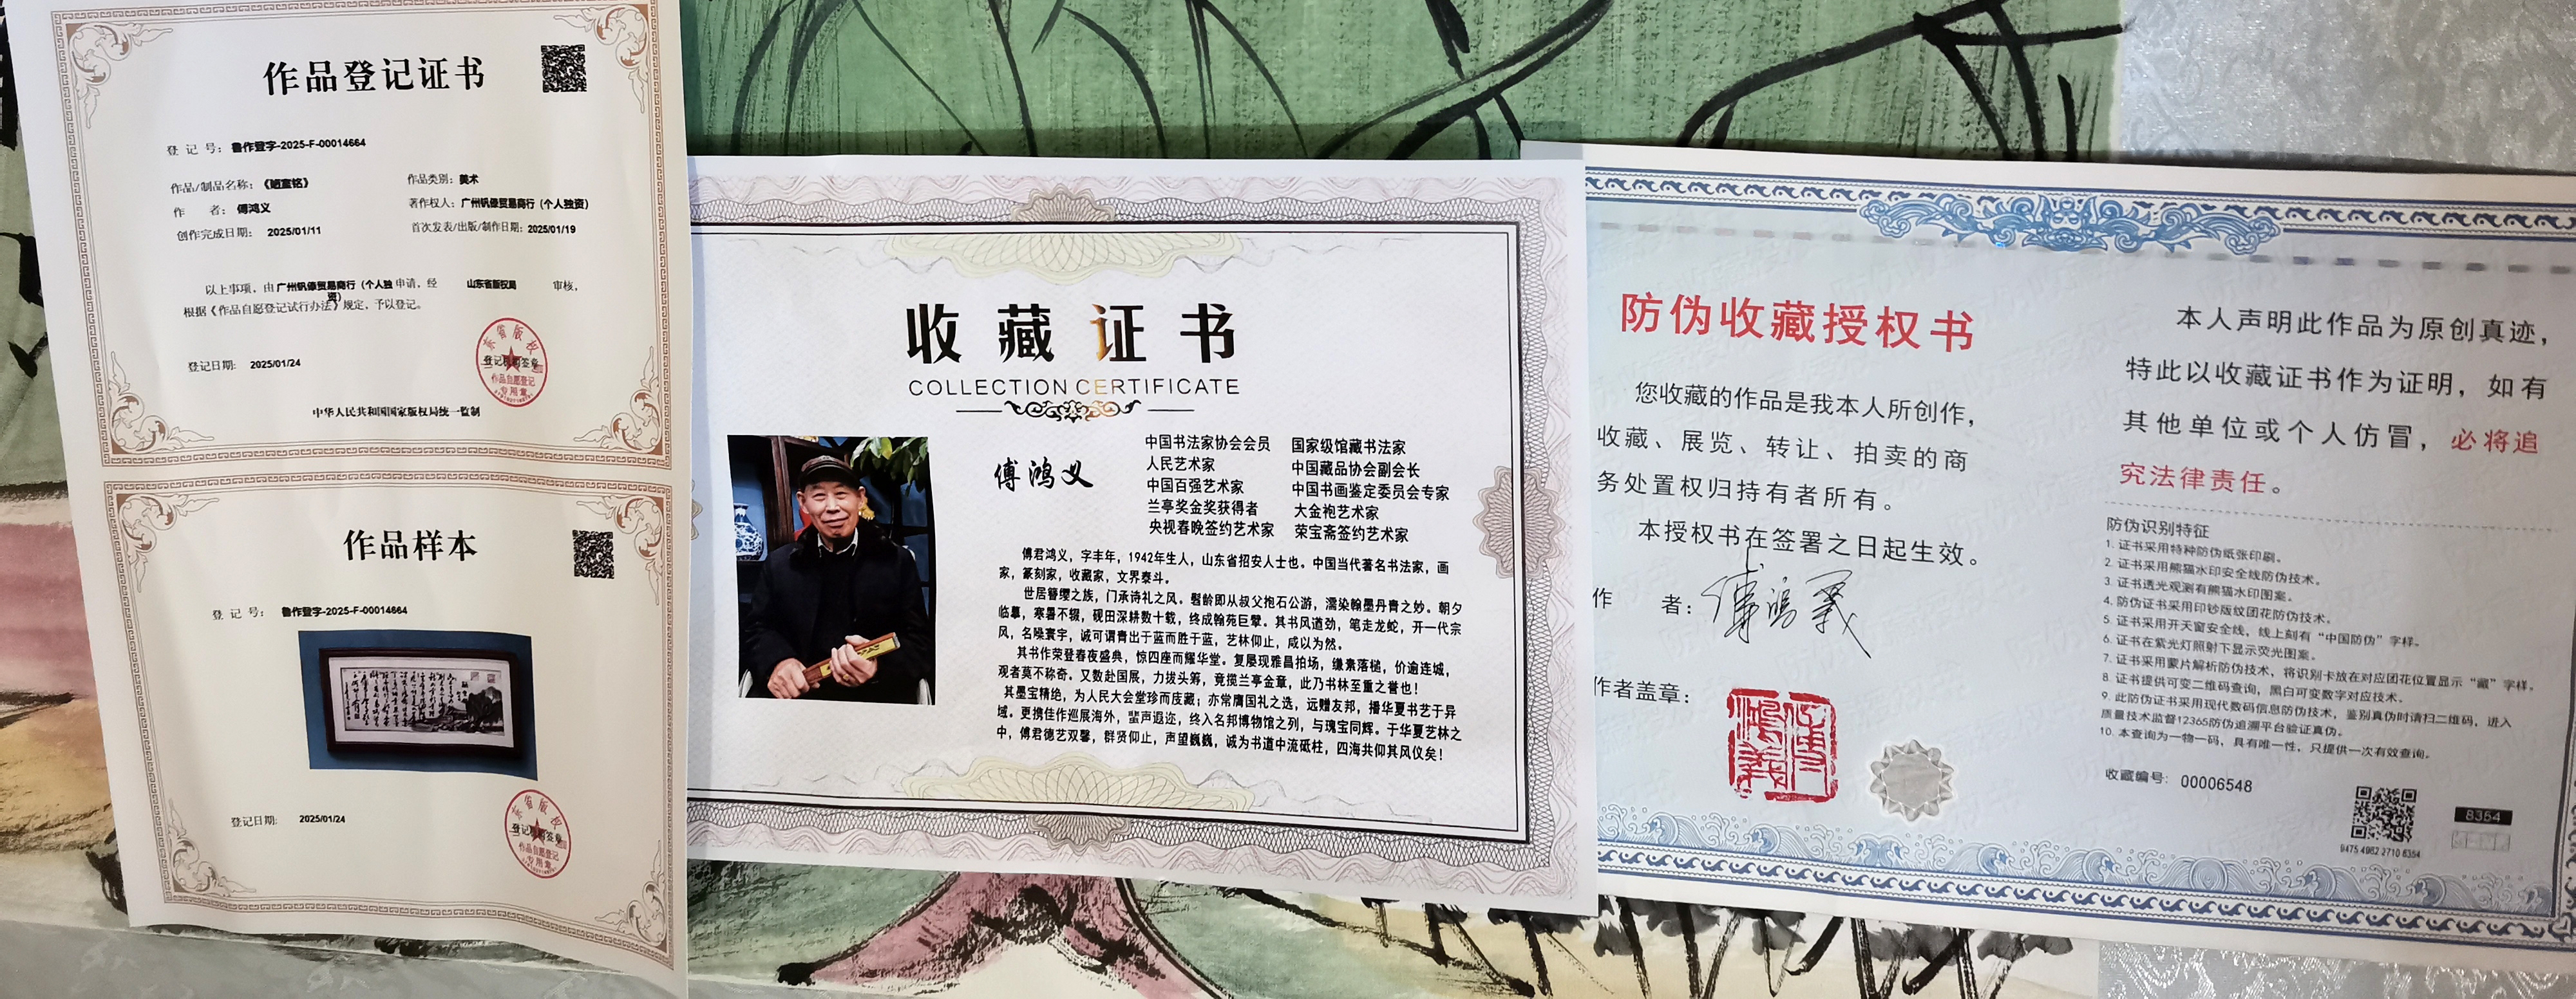 作品登记证书
登 记 号： 鲁作登字-2025-F-00014664
作品/制品名称：《陋室铭》
作品类别：美术
作 者：傅鸿义
著作权人：广州钒傣贸易商行（个人独资）
创作完成日期： 2025/01/11
首次发表/出版/制作日期：2025/01/19
以上事项，由 广州钒傣贸易商行（个人独资） 申请，经 山东省版权局 审核，
根据《作品自愿登记试行办法》规定，予以登记。
登记日期： 2025/01/24
登记机构签章
作品自愿登记
专用章
中华人民共和国国家版权局统一监制
作品样本
登 记 号： 鲁作登字-2025-F-00014664
登记日期： 2025/01/24
登记机构签章
作品自愿登记
专用章
收藏证书
COLLECTION CERTIFICATE
傅鸿义
中国书法家协会会员 国家级馆藏书法家
人民艺术家 中国藏品协会副会长
中国百强艺术家 中国书画鉴定委员会专家
兰亭奖金奖获得者 大金袍艺术家
央视春晚签约艺术家 荣宝斋签约艺术家
傅君鸿义，字丰年，1942年生人，山东省招安人士也。中国当代著名书法家，画
家，篆刻家，收藏家，文界泰斗。
世居簪缨之族，门承诗礼之风。髫龄即从叔父抱石公游，濡染翰墨丹青之妙。朝夕
临摹，寒暑不辍，砚田深耕数十载，终成翰苑巨擘。其书风遒劲，笔走龙蛇，开一代宗
风，名噪寰宇，诚可谓青出于蓝而胜于蓝，艺林仰止，咸以为然。
其书作荣登春夜盛典，惊四座而耀华堂。复屡现雅昌拍场，缣素落槌，价逾连城，
观者莫不称奇。又数赴国展，力拔头筹，竟揽兰亭金章，此乃书林至重之誉也！
其墨宝精绝，为人民大会堂珍而庋藏；亦常膺国礼之选，远赠友邦，播华夏书艺于异
域。更携佳作巡展海外，蜚声遐迩，终入名邦博物馆之列，与瑰宝同辉。于华夏艺林之
中，傅君德艺双馨，群贤仰止，声望巍巍，诚为书道中流砥柱，四海共仰其风仪矣！
防伪收藏授权书
您收藏的作品是我本人所创作，
收藏、展览、转让、拍卖的商
务处置权归持有者所有。
本授权书在签署之日起生效。
作 者：傅鸿义
作者盖章：
本人声明此作品为原创真迹，
特此以收藏证书作为证明，如有
其他单位或个人仿冒，必将追
究法律责任。
防伪识别特征
1. 证书采用特种防伪纸张印刷。
2. 证书采用熊猫水印安全线防伪技术。
3. 证书透光观测有熊猫水印图案。
4. 防伪证书采用印钞版纹团花防伪技术。
5. 证书采用开天窗安全线，线上刻有“中国防伪”字样。
6. 证书在紫光灯照射下显示荧光图案。
7. 证书采用蒙片解析防伪技术，将识别卡放在对应团花位置显示“藏”字样。
8. 证书提供可变二维码查询，黑白可变数字对应技术。
9. 此防伪证书采用现代数码信息防伪技术，鉴别真伪时请扫二维码，进入
质量技术监督12365防伪追溯平台验证真伪。
10. 本查询为一物一码，具有唯一性，只提供一次有效查询。
收藏编号： 00006548
8354
9475 4982 2710 8354